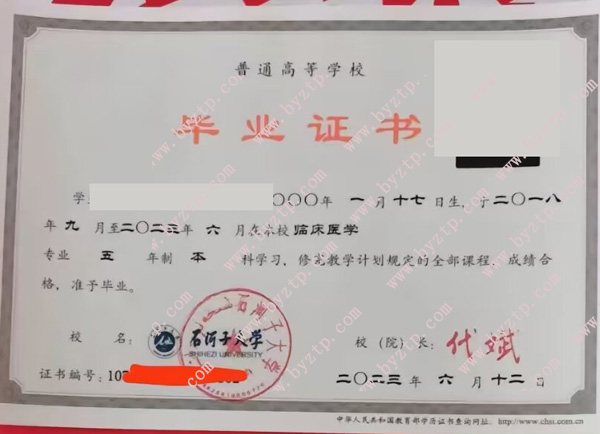 普通高等学校
毕业证书
学 二〇〇〇年 一 月十七日生，于二〇一八
年 九 月至二〇二三年 六 月在本校 临床医学
专业 五 年制 本 科学习，修完教学计划规定的全部课程，成绩合
格，准予毕业。
校 名： 石河子大学 校（院）长： 代斌
SHIHEZI UNIVERSITY
石河子大学
证书编号：10 二〇二三年 六 月十二日
中华人民共和国教育部学历证书查询网址：http://www.chsi.com.cn
www.byztp.com